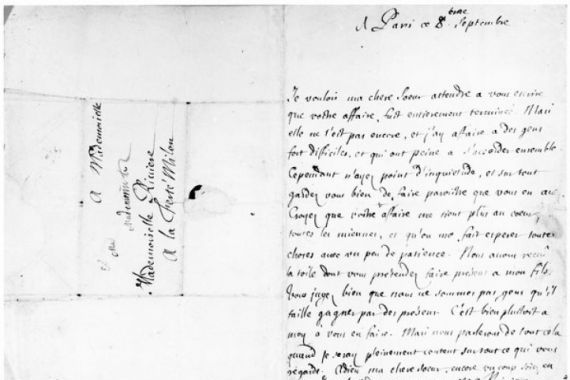 A Mademoiselle
Mademoiselle Riviere
A la Ferté Milon
A Paris ce 8. Septembre
Je voulois ma chere soeur attendre a vous écrire
que vostre affaire fust entierement terminée. Mais
elle ne l'est pas encore, et j'ay affaire a des gens
fort difficiles, et qui ont peine a s'accorder ensemble.
Cependant n'ayez point d'inquietude, et sur tout
gardez vous bien de faire paroistre que vous en
Croyez que vostre affaire me tient plus au coeur que
toutes les miennes, et qu'on me fait esperer toutes
choses avec un peu de patience. Nous avons receu
la toile dont vous pretendez faire present a mon fils.
Vous jugez bien que nous ne sommes pas gens qu'il
faille gagner par des present. C'est bien plustost a
moy a vous en faire. Mais nous parlerons de tout cela
quand je seray pleinement content sur tout ce qui vous
regarde. Adieu ma chere soeur, encore un coup